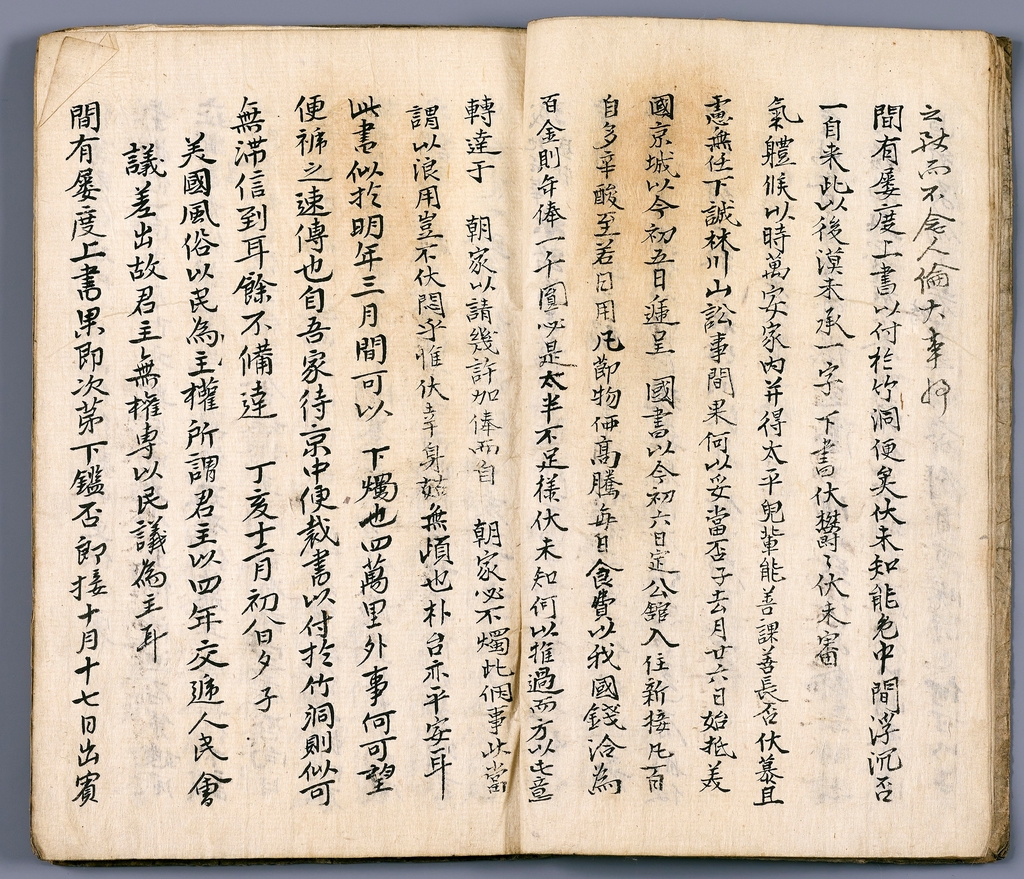 之故而不念人倫大事好
間有屢度上書以付於竹洞便矣伏未知能免中間浮沉否
一自来此以後漠未承一字 下書伏欝〻伏未審
氣軆候以時萬安家內幷得太平兒輩能善課善長否伏慕且
慮無任下誠林川山訟事間果何以妥當否子去月廿六日始抵美
國京城以今初五日遞呈 國書以今初六日定公舘入住新接凡百
自多辛酸至若日用凡節物価高騰每日食費以我國錢洽為
百金則年俸一千圓必是太半不足樣伏未知何以推過而方以此意
轉達于 朝家以請幾許加俸而自 朝家必不燭此個事此當
謂以浪用豈不伏悶乎惟伏幸身姑無頉也朴台亦平安耳
此書似於明年三月間可以 下燭也四萬里外事何可望
便褫之速傳也自吾家待京中便裁書以付於竹洞則似可
無滞信到耳餘不備達 丁亥十二月初八日夕子
美國風俗以民為主權所謂君主以四年交遞人民會
議差出故君主無權専以民議為主耳
間有屢度上書果即次苐下鑑否卽接十月十七日出賓